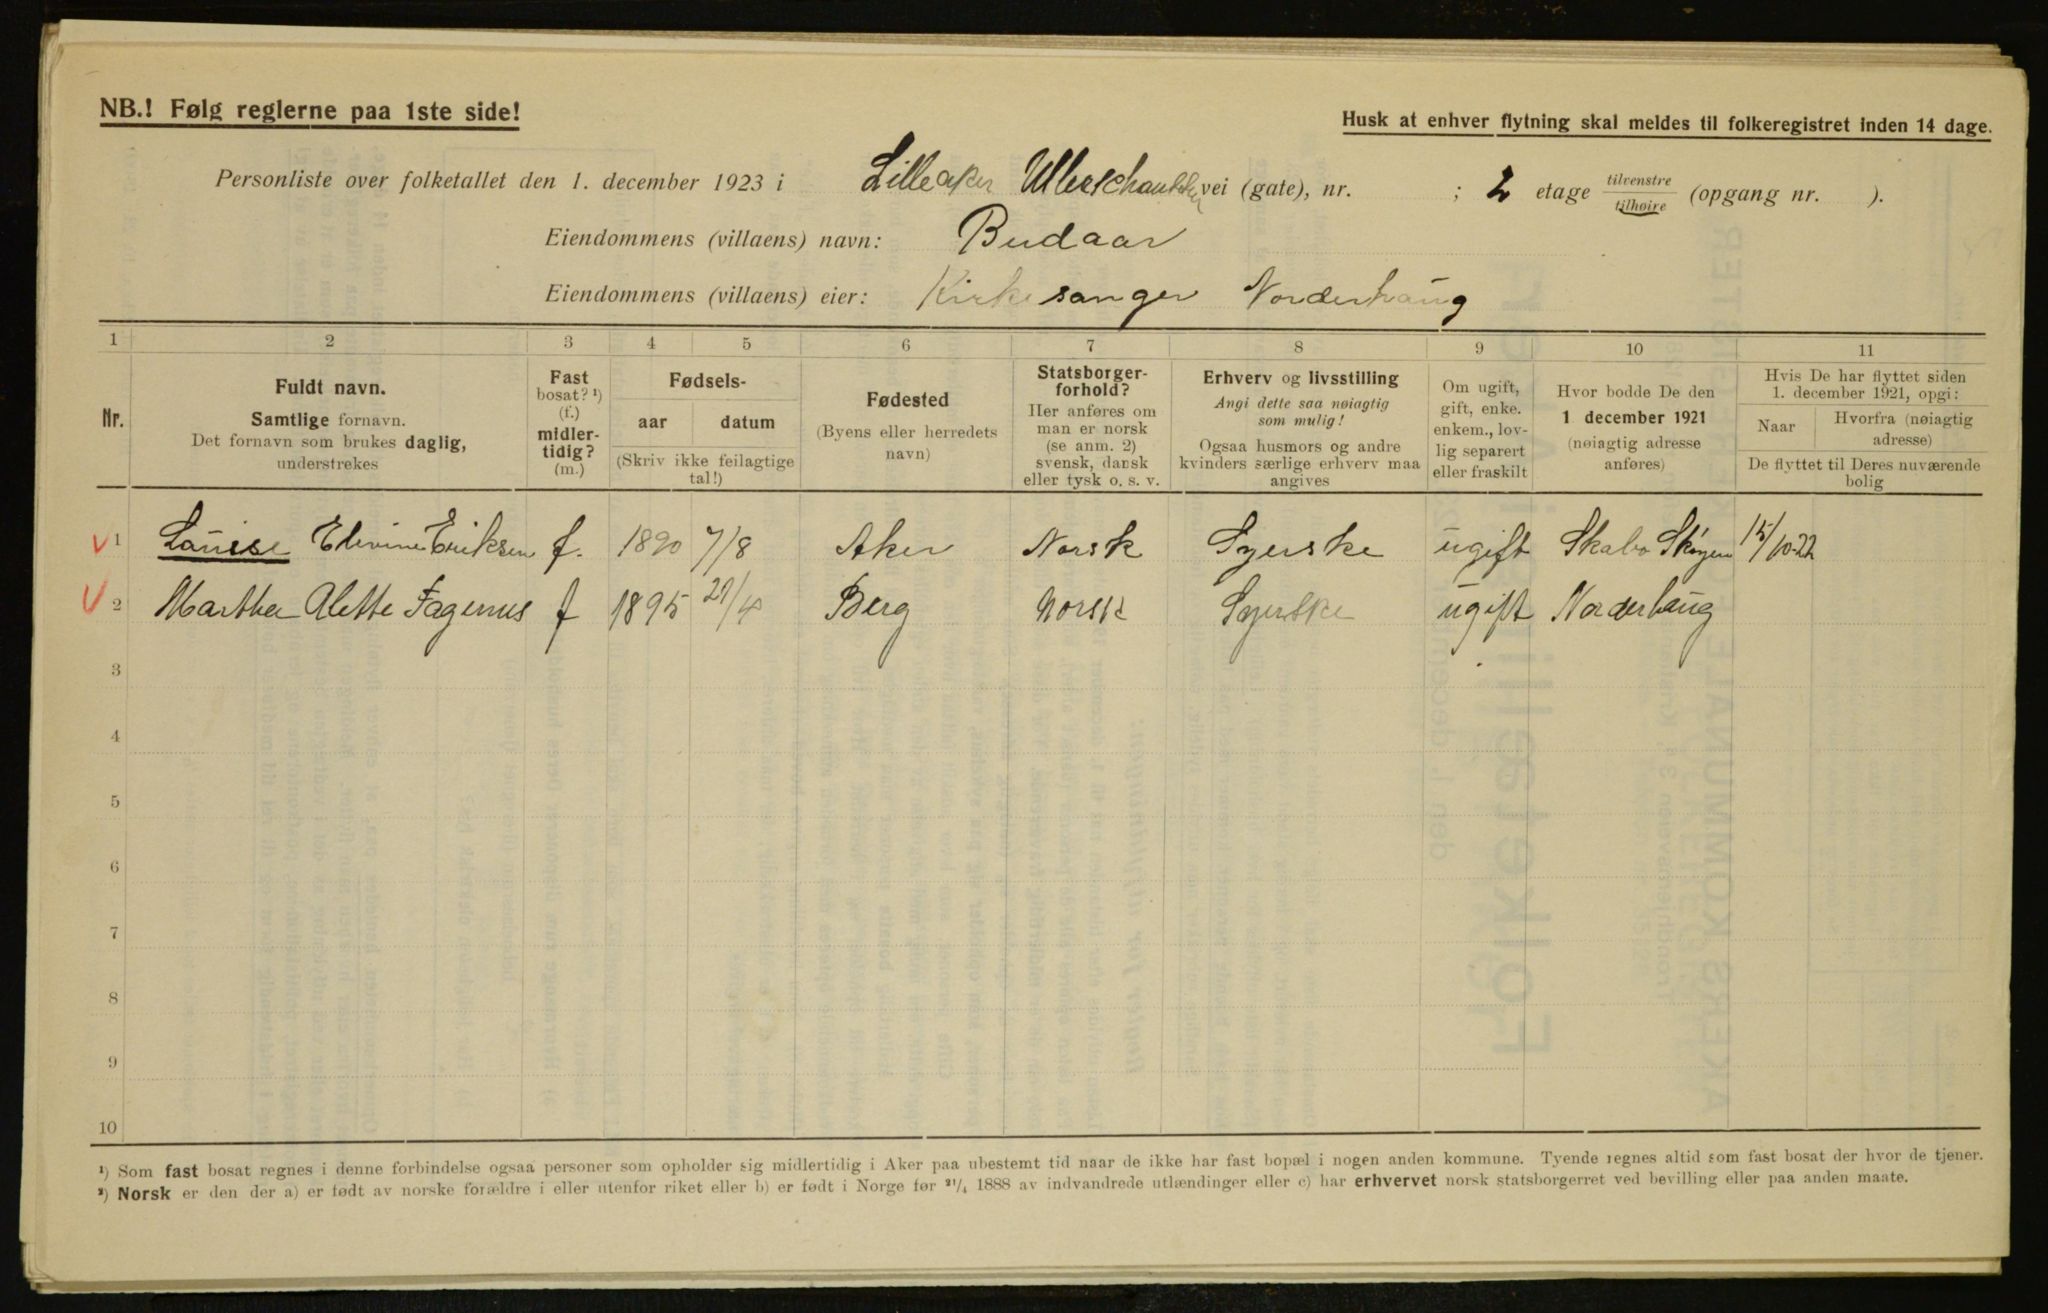 NB.! Følg reglerne paa 1ste side!
Husk at enhver flytning skal meldes til folkeregistret inden 14 dage.
Personliste over folketallet den 1. december 1923 i Lilleaker Ullernchausseen vei (gate), nr. ; 2 etage tilvenstre tilhøire (opgang nr. ).
Eiendommens (villaens) navn: Budaar
Eiendommens (villaens) eier: Kirkesanger Norderhaug
1 2 3 4 5 6 7 8 9 10 11
Nr.
Fuldt navn.
Samtlige fornavn.
Det fornavn som brukes daglig,
understrekes
Fast
bosat? ¹)
(f.)
midler-
tidig?
(m.)
Fødsels-
aar datum
(Skriv ikke feilagtige
tal!)
Fødested
(Byens eller herredets
navn)
Statsborger-
forhold?
Her anføres om
man er norsk
(se anm. 2)
svensk, dansk
eller tysk o. s. v.
Erhverv og livsstilling
Angi dette saa nøiagtig
som mulig!
Ogsaa husmors og andre
kvinders særlige erhverv maa
angives
Om ugift,
gift, enke.
enkem., lov-
lig separert
eller fraskilt
Hvor bodde De den
1 december 1921
(nøiagtig adresse
anføres)
Hvis De har flyttet siden
1. december 1921, opgi:
Naar
Hvorfra (nøiagtig
adresse)
De flyttet til Deres nuværende
bolig
1 Louise Elevine Eriksen f. 1890 7/8 Aker Norsk Syerske ugift Skabo Skøyen 15/10-22
2 Martha Alette Fagernes f 1895 /4 Berg Norsk Syerske ugift Norderhaug
3
4
5
6
7
8
9
10
¹) Som fast bosat regnes i denne forbindelse ogsaa personer som opholder sig midlertidig i Aker paa ubestemt tid naar de ikke har fast bopæl i nogen anden kommune. Tyende regnes altid som fast bosat der hvor de tjener.
²) Norsk er den der a) er født av norske forældre i eller utenfor riket eller b) er født i Norge før ²¹/₄ 1888 av indvandrede utlændinger eller c) har erhvervet norsk statsborgerret ved bevilling eller paa anden maate.